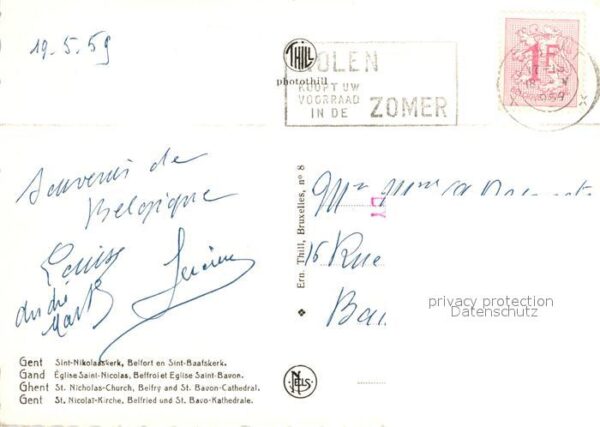 19.5.59
THILL
photothill
KOLEN
KOOPT UW
VOORRAAD
IN DE ZOMER
1F
Souvenir de
Belgique
Louise
Lucien
André
Ern. Thill, Bruxelles, n° 8
Mr Mme
15 Rue
privacy protection
Datenschutz
Gent Sint-Nikolaaskerk, Belfort en Sint-Baafskerk.
Gand Église Saint-Nicolas, Beffroi et Eglise Saint-Bavon.
Ghent St. Nicholas-Church, Belfry and St. Bavon-Cathedral.
Gent St. Nicolat-Kirche, Belfried und St. Bavo-Kathedrale.
NELS